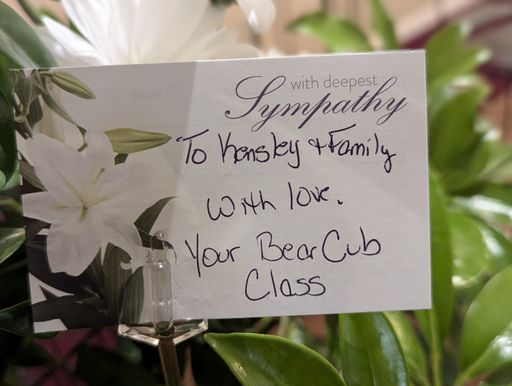 with deepest
Sympathy
To Kensley + Family
With love.
Your Bear Cub
Class